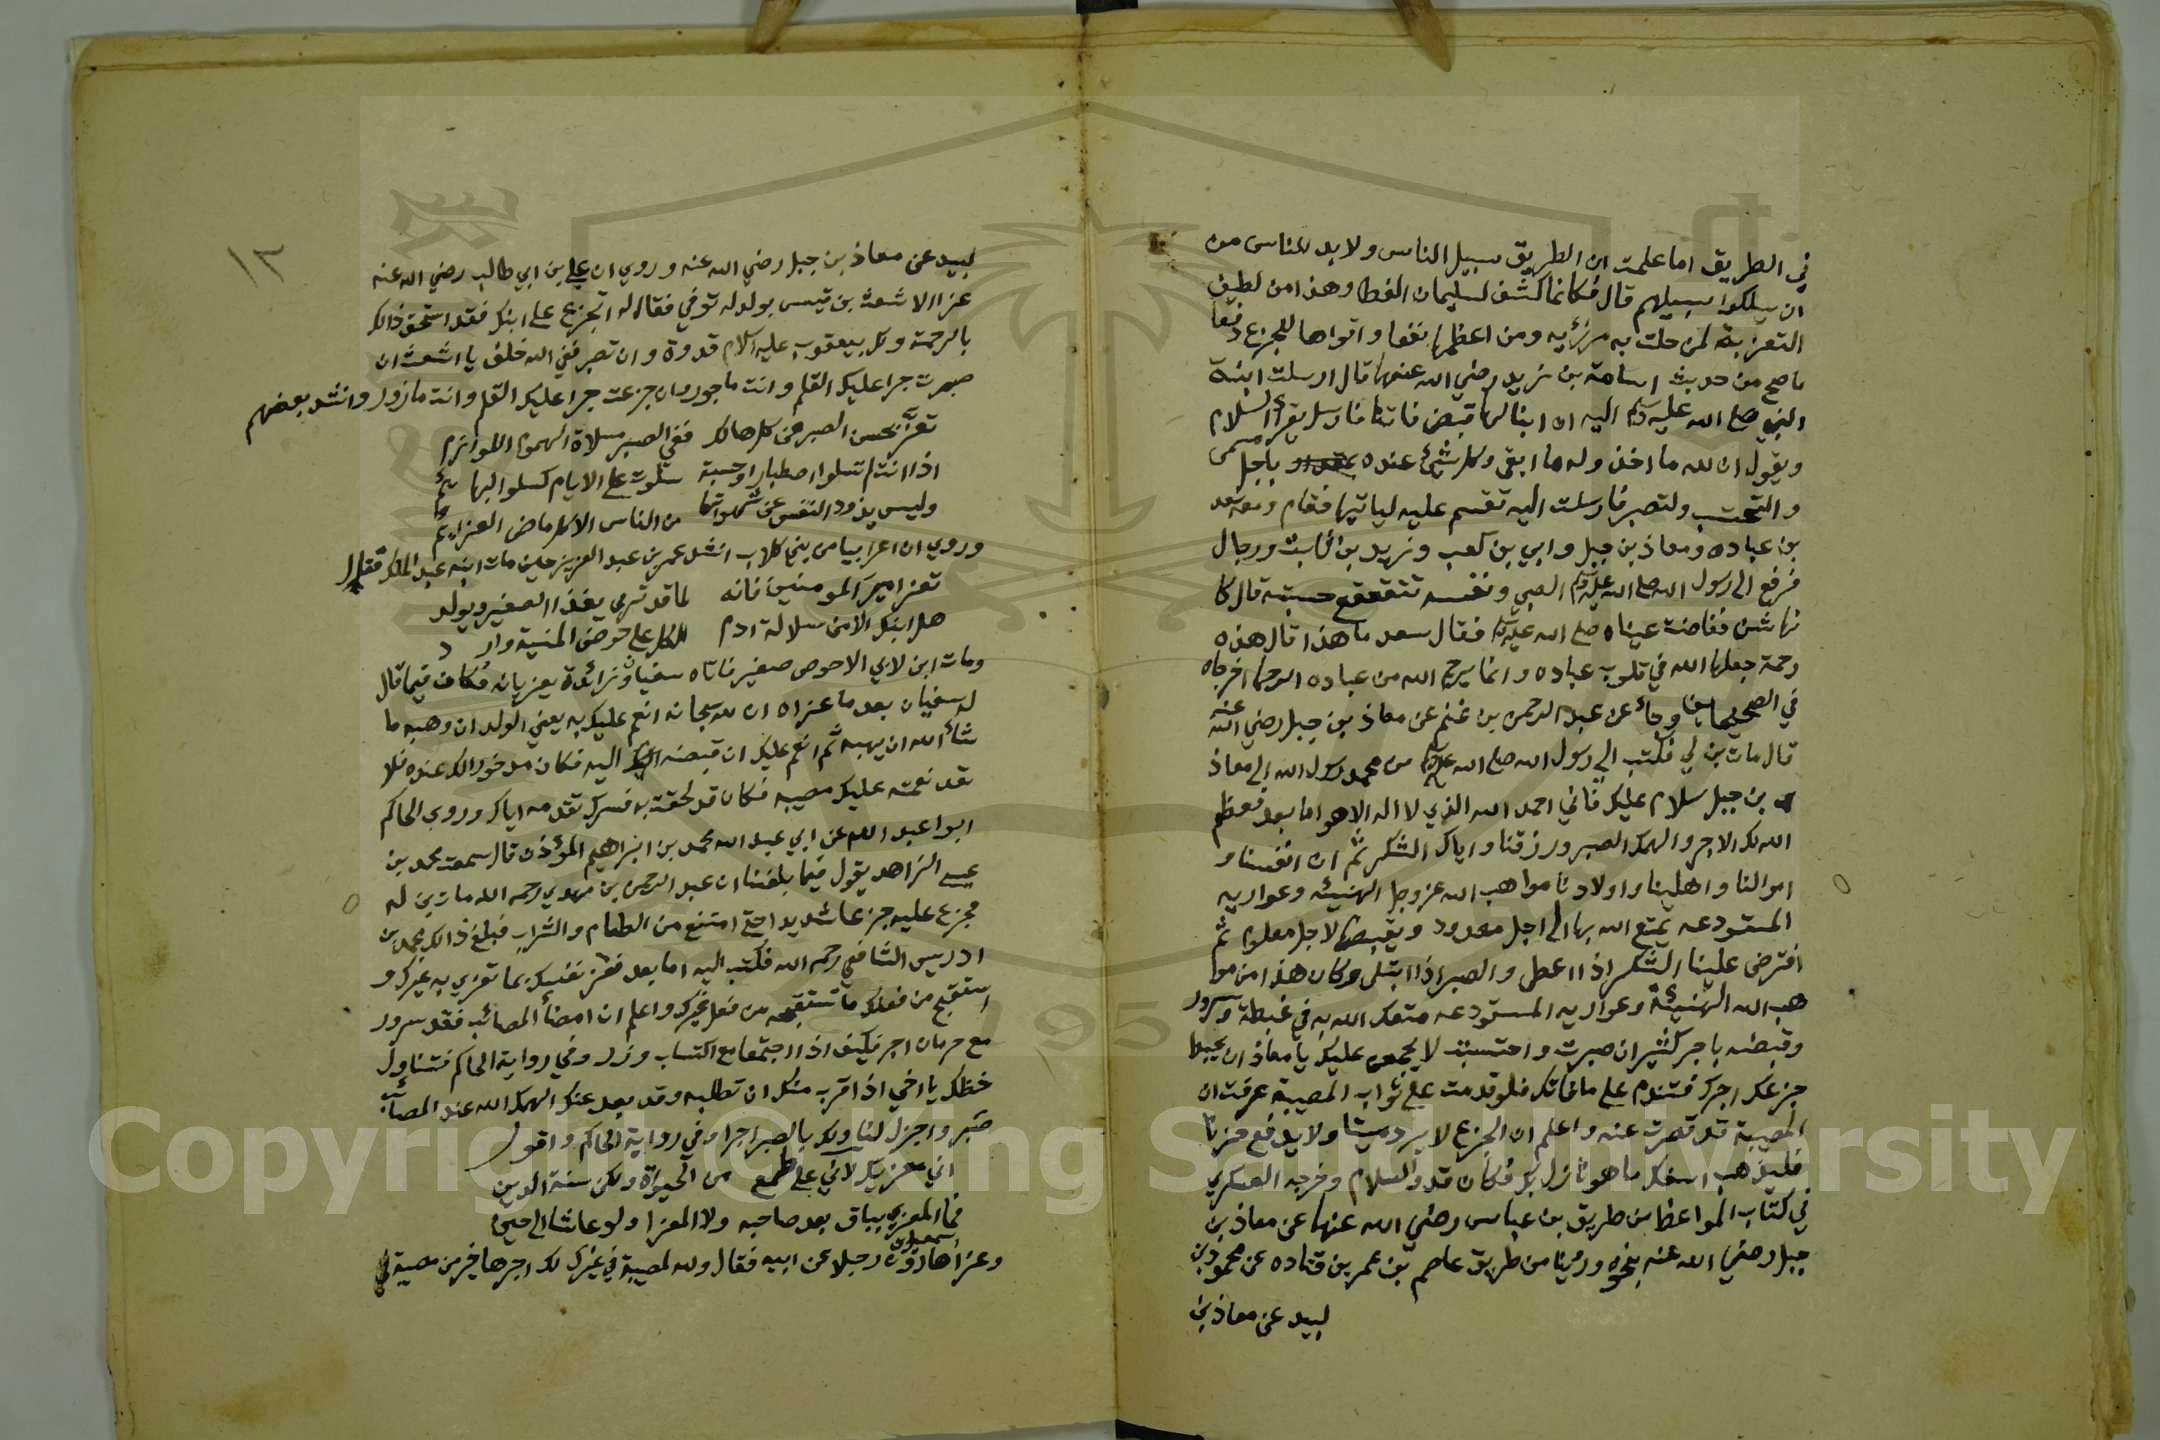 في الطريق اما علمت ان الطريق سبيل الناس ولا بد للناس من
ان يسلكوا سبيلهم قال فكانما كشف لسليمان الغطا وهذا من لطيف
التعزية لمن حلت به مرزئيه ومن اعظمها نفعا واقواها للجزع دفعا
ما صح من حديث اسامة بن زيد رضي الله عنهما قال ارسلت ابنة
النبي صلى الله عليه وسلم اليه ان ابنا لها قبض فاتنا فارسل يقرئ السلام
ويقول ان لله ما اخذ وله ما ابقى وكل شيء عنده باجل مسمى
والتحتسب ولتصبر فارسلت اليه تقسم عليه لياتيها فقام ومعه سعد
بن عباده ومعاذ بن جبل وابي بن كعب وزيد بن ثابت ورجال
فرفع الى رسول الله صلى الله عليه وسلم الصبي ونفسه تتقعقع حسبته قال كا
نها شن ففاضت عيناه صلى الله عليه وسلم فقال سعد ما هذا قال هذه
رحمة جعلها الله في قلوب عباده وانما يرحم الله من عباده الرحما اخرجاه
في الصحيحين وجاء عن عبد الرحمن بن غنم عن معاذ بن جبل رضي الله عنه
قال مات بن لي فكتب الي رسول الله صلى الله عليه وسلم من محمد رسول الله الى معاذ
بن جبل سلام عليك فاني احمد الله الذي لا اله الا هو اما بعد فعظم
الله لك الاجر والهمك الصبر ورزقنا واياك الشكر ثم ان انفسنا و
اموالنا واهلينا واولادنا مواهب الله عز وجل الهنيئه وعواريه
المستودعه يمتع الله بها الى اجل معدود ويقبضها لاجل معلوم ثم
افترض علينا الشكر اذا اعطى والصبر اذا ابتلى وكان هذا من موا
هب الله الهنيئة وعواريه المستودعه متعك الله به في غبطة وسرور
وقبضه باجر كثير ان صبرت واحتسبت لا يجمعن عليك يا معاذ ان يحبط
جزعك اجرك فتندم على ما فاتك فلو قدمت على ثواب المصيبة عرفت ان
المصيبة قد قصرت عنه واعلم ان الجزع لا يرد ميتا ولا يدفع حزنا
فليذهب اسفك ما هو نازل بك فكان قد والسلام وخرجه العسكري
في كتاب المواعظ من طريق بن عباس رضي الله عنهما عن معاذ بن
جبل رضي الله عنه بنحوه وروينا من طريق عاصم بن عمر بن قتاده عن محمود بن
لبيد عن معاذ بن
١٢
لبيد عن معاذ بن جبل رضي الله عنه وروي ان علي بن ابي طالب رضي الله عنه
عزا الاشعث بن قيس بولد له توفي فقال له اتجزع على ابنك فقد استحق ذالك
بالرحمة ولك بيعقوب عليه السلام قدوة وان تصبر ففي الله خلف يا اشعث ان
صبرت جرا عليك القلم وانت ماجور وان جزعت جرا عليك القلم وانت مازور وانشد بعضهم
تعز بحسن الصبر عن كل هالك ففي الصبر مسلاة الهموم اللوازم
اذا انت لم تسلوا اصطبارا وحسبة سلوت على الايام كسلو البهائم
وليس يذود النفس عن شهواتها من الناس الا كل ماض العزايم
وروي ان اعرابيا من بني كلاب انشد عمر بن عبد العزيز حين مات ابنه عبد الملك فقال
تعز امير المومنين فانه لما قد ترى يغذا الصغير ويولد
هل ابنك الا من سلالة ادم لكل على حوض المنية وارد
ومات ابن لابي الاحوص صغير فاتاه سفيان وزائدة يعزيانه فكان فيما قال
له سفيان بعد ما عزاه ان لله سبحانه انعم عليك به يعني الولد ان وهبه ما
شاء الله ان يهبه ثم انعم عليك ان قبضه اليه فكان مدخورا لك عنده فلا
تعد نعمته عليك مصيبه فكان قد لحقت به فسرك تقدمه اياك وروى الحاكم
ابوا عبد الله عن ابي عبد الله محمد بن ابراهيم المؤذن قال سمعت محمد بن
عيسى الزاهد يقول فيما بلغنا ان عبد الرحمن بن مهدي رحمه الله مات بن له
فجزع عليه جزعا شديدا حتى امتنع من الطعام والشراب فبلغ ذالك محمد بن
ادريس الشافعي رحمه الله فكتب اليه اما بعد فعز نفسك بما تعزي به غيرك و
استقبح من فعلك ما تستقبحه من فعل غيرك واعلم ان امضأ المصائب فقد سرور
مع حرمان اجر فكيف اذا اجتمعا مع اكتساب وزر وفي رواية الحاكم فتناول
حظك يا اخي اذا قرب منك ان تطلبه وقد بعد عنك الهمك الله عند المصائب
صبر واجزل لنا ولك بالصبر اجرا وفي رواية الحاكم واقول
اني معزيك لا اني على طمع من الحيوة ولكن سنة الدين
فما المعزي بباق بعد صاحبه ولا المعزا ولو عاشا الى حين
وعزا هارون رجلا عن ابيه فقال ولله لمصيبة في غيرك لك اجرها خير من مصيبة
Copyright © King Saud University
195